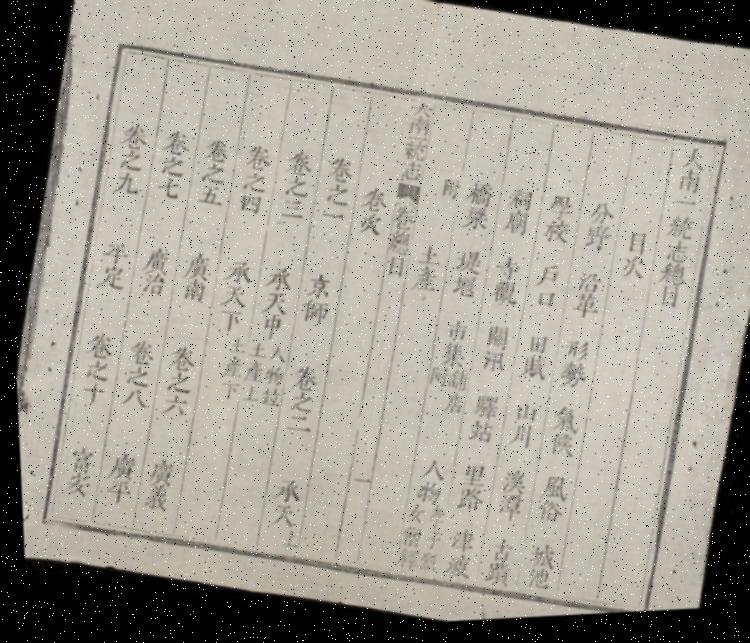 大南一統志總目
目次
分野 沿革 形勢 氣候 風俗 城池
學校 戶口 田賦 山川 溪潭 古蹟
祠廟 寺觀 關汛 驛站 里路 津渡
橋梁 堤堰 市集 鋪店附 人物
附 土產
大南一統志 卷總目 一
卷次
卷之一 京師 卷之二 承天上
卷之三 承天中 人物 土產上
卷之四 承天下 土產下
卷之五 廣南 卷之六 廣義
卷之七 廣治 卷之八 廣平
卷之九 平定 卷之十 富安